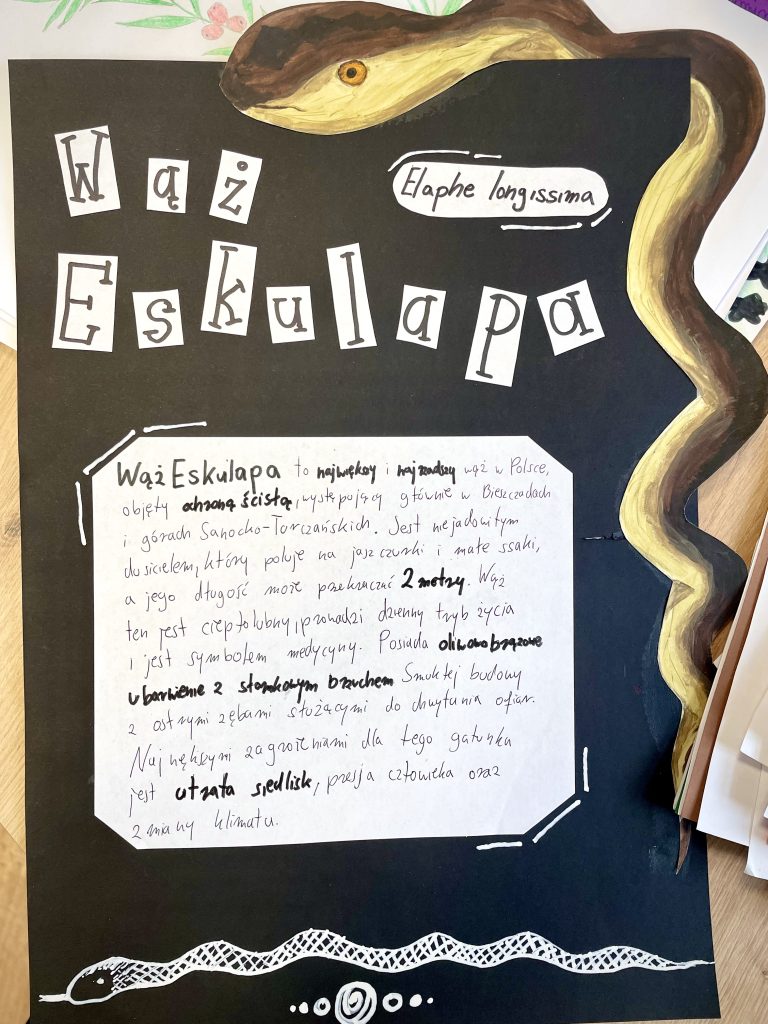 Wąż
Elaphe longissima
Eskulapa
Wąż Eskulapa to największy i najrzadszy wąż w Polsce,
objęty ochroną ścisłą, występujący głównie w Bieszczadach
i górach Sanocko-Turczańskich. Jest niejadowitym
dusicielem, który poluje na jaszczurki i małe ssaki,
a jego długość może przekraczać 2 metry. Wąż
ten jest ciepłolubny, prowadzi dzienny tryb życia
i jest symbolem medycyny. Posiada oliwkowobrązowe
ubarwienie z słomkowym brzuchem Smukłej budowy
z ostrymi zębami służącymi do chwytania ofiar.
Największymi zagrożeniami dla tego gatunku
jest utrata siedlisk, presja człowieka oraz
zmiany klimatu.